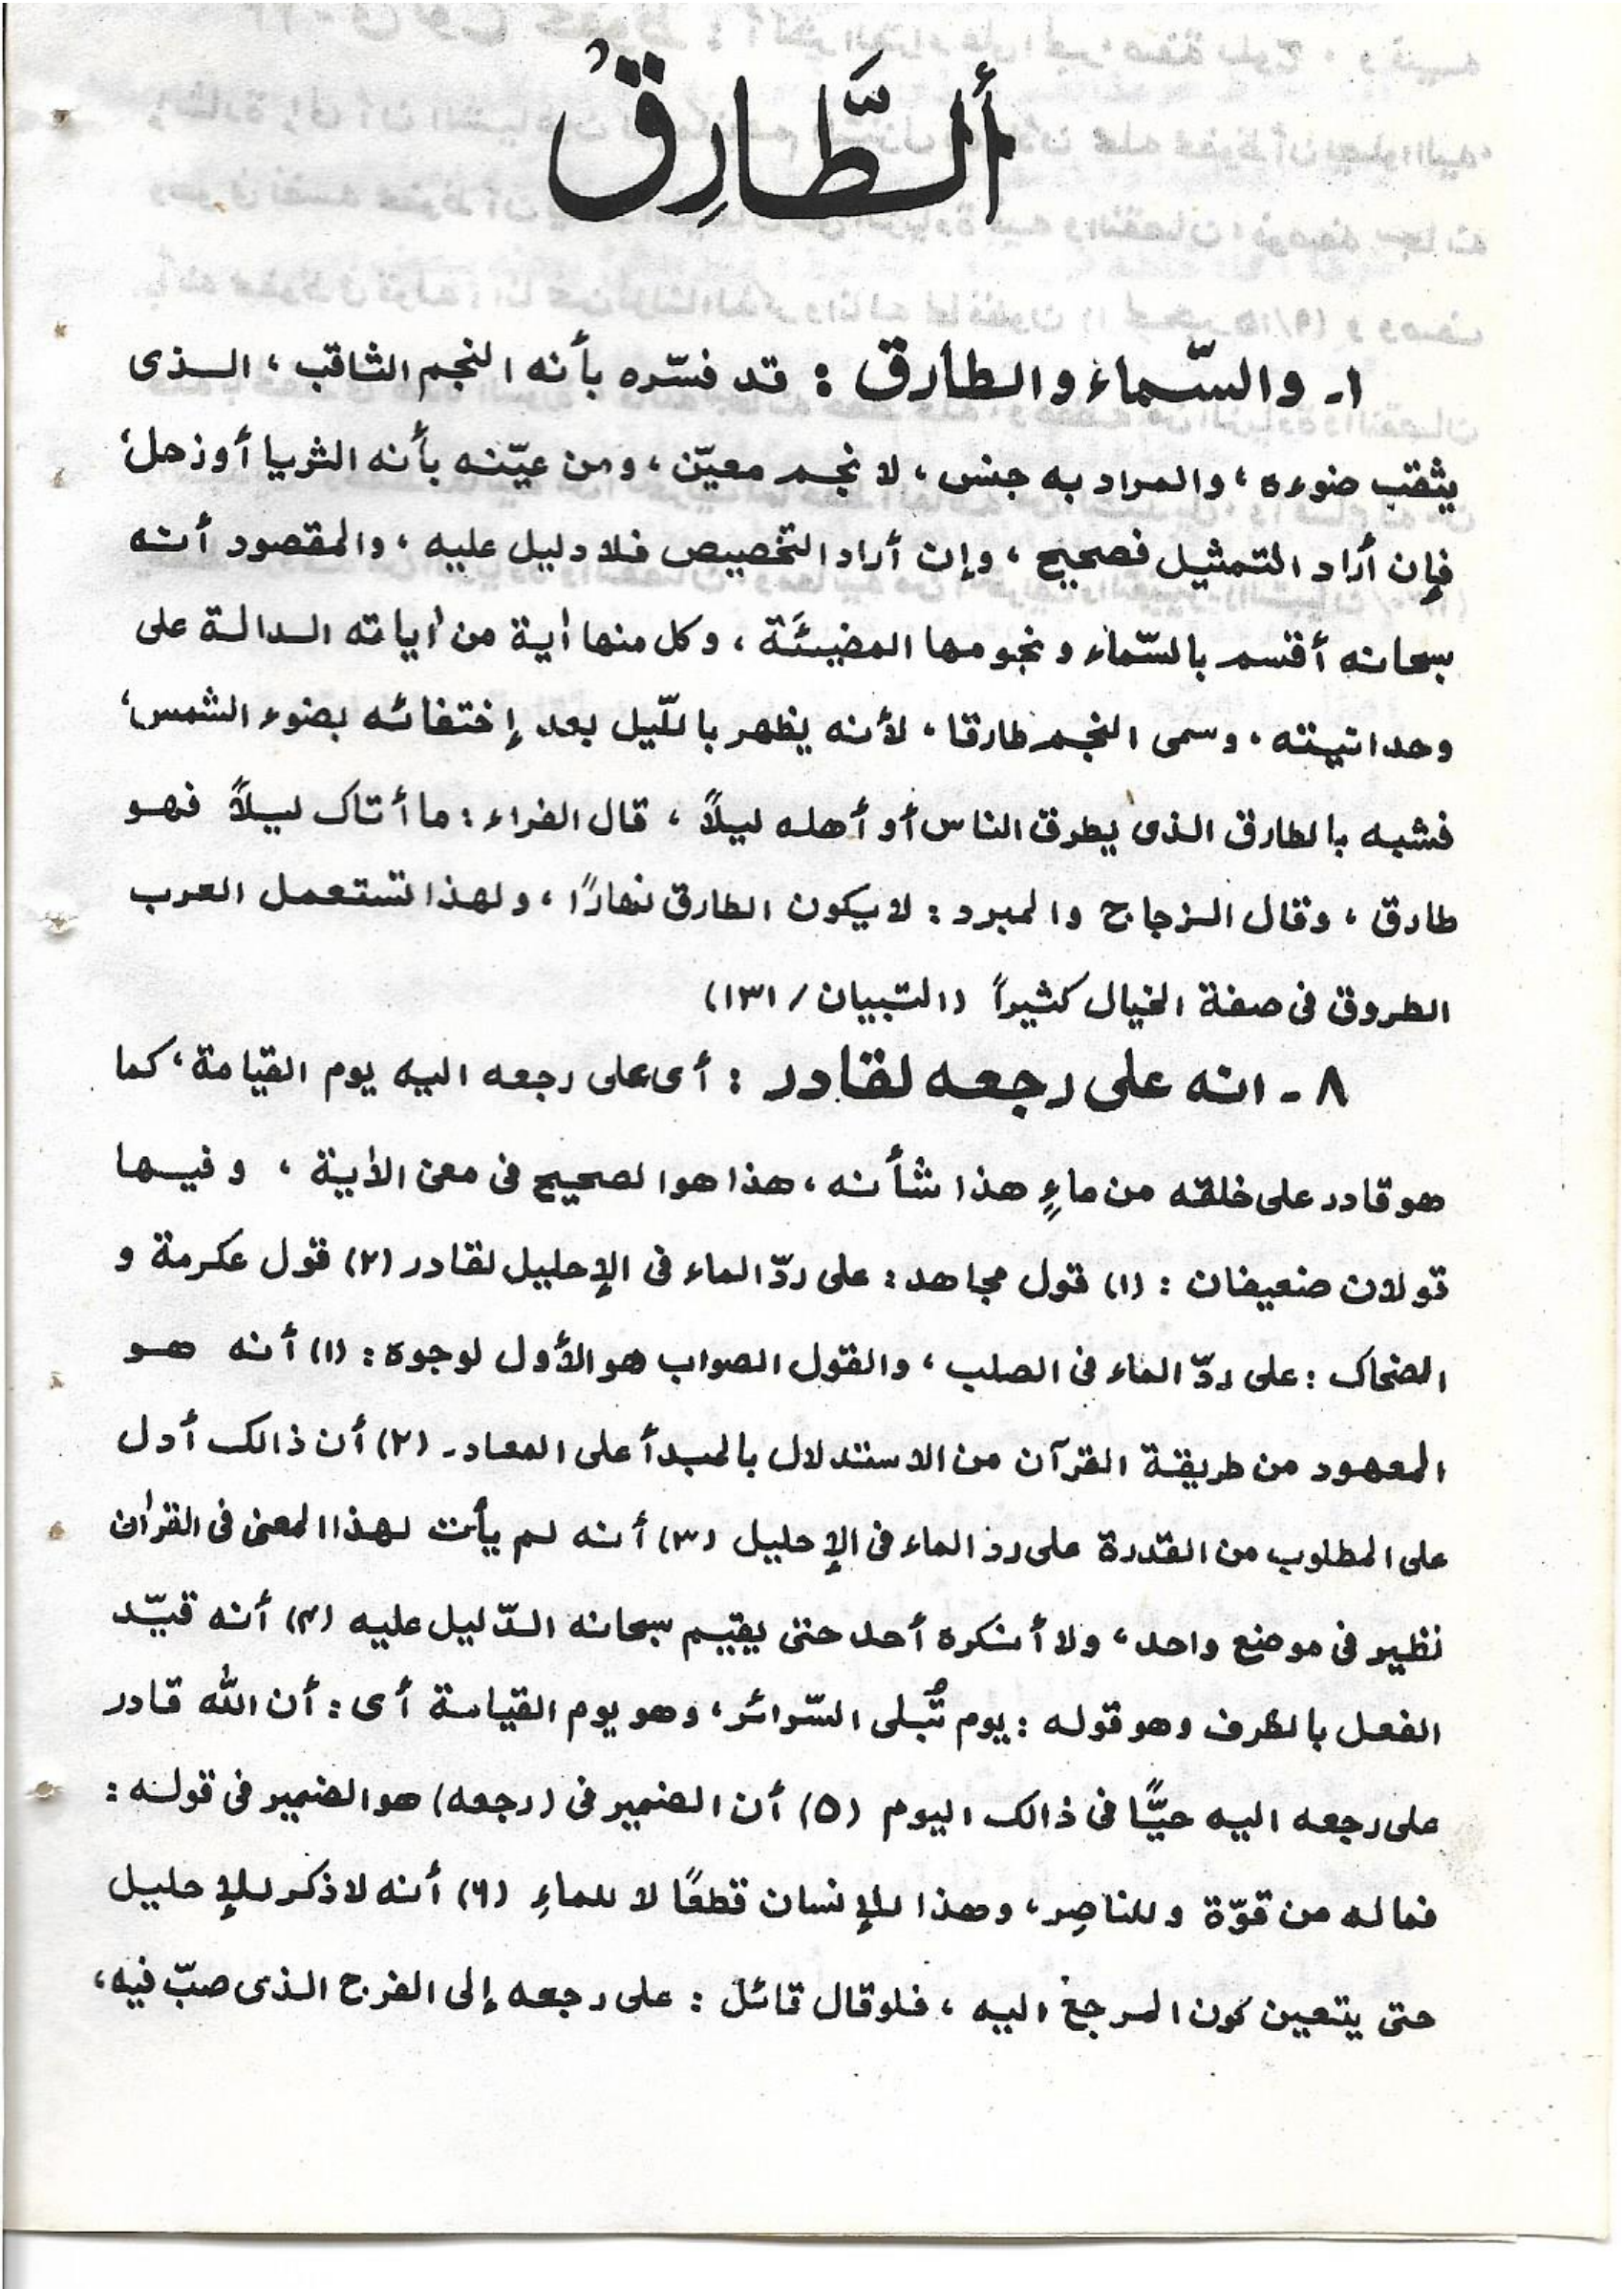 ألطَّارِقُ
١- والسّماء والطارق : قد فسّره بأنه النجم الثاقب ، الـذى
يثقب ضوءه ، والمراد به جنس ، لا نجم معيّن ، ومن عيّنه بأنه الثريا أو زحل،
فإن أراد التمثيل فصحيح ، وإن أراد التخصيص فلا دليل عليه ، والمقصود أنه
سبحانه أقسم بالسّماء و نجومها المضيئَة ، وكل منها أية من أياته الدالة على
وحدانيته ، وسمى النجم طارقا ، لأنه يظهر بالليّل بعد إختفائه بضوء الشمس،
فشبه بالطارق الذى يطرق الناس أو أهله ليلاً ، قال الفراء : ما أتاك ليلاً فهو
طارق ، وقال الزجاج والمبرد : لا يكون الطارق نهارًا ، ولهذا تستعمل العرب
الطروق فى صفة الخيال كثيراً (التبيان/١٣١)
٨ - انه على رجعه لقادر : أى على رجعه اليه يوم القيامة ، كما
هو قادر على خلقه من ماءٍ هذا شأنه ، هذا هو الصحيح فى معنى الأية ، وفيها
قولان ضعيفان : (١) قول مجاهد : على ردّ الماء فى الإحليل لقادر (٢) قول عكرمة و
الضحاك : على ردّ الماء فى الصلب ، والقول الصواب هو الأول لوجوه : (١) أنه هو
المعهود من طريقة القرآن من الاستدلال بالمبدأ على المعاد- (٢) أن ذالك أدل
على المطلوب من القدرة على رد الماء فى الإحليل (٣) أنه لم يأت لهذا المعنى فى القرأن
نظير فى موضع واحد ، ولا أنكره أحد حتى يقيم سبحانه الدّليل عليه (٤) أنه قيّد
الفعل بالظرف وهو قوله : يوم تُبلى السّرائر، وهو يوم القيامة أى : أن الله قادر
على رجعه اليه حيًّا فى ذالك اليوم (٥) أن الضمير فى (رجعه) هو الضمير فى قوله :
فماله من قوّة وللناصِر، وهذا للإنسان قطعًا لا للماءِ (٦) أنه لا ذكر للإحليل
حتى يتعين كون المرجع اليه ، فلو قال قائل : على رجعه إلى الفرج الذى صبّ فيه،